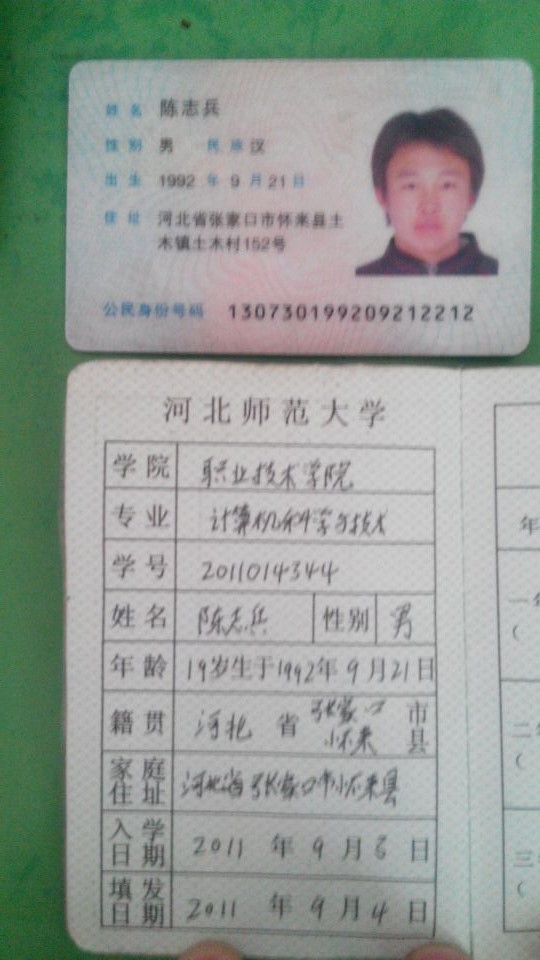 姓名 陈志兵
性别 男 民族 汉
出生 1992 年 9 月 21 日
住址 河北省张家口市怀来县土
木镇土木村152号
公民身份号码 130730199209212212
河北师范大学
学院 职业技术学院
专业 计算机科学与技术
学号 2011014344
姓名 陈志兵 性别 男
年龄 19岁生于1992年9月21日
籍贯 河北 省 张家口 市
怀来 县
家庭住址 河北省张家口市怀来县
入学日期 2011 年 9 月 3 日
填发日期 2011 年 9 月 4 日
年
一年
(
二年
(
三年
(